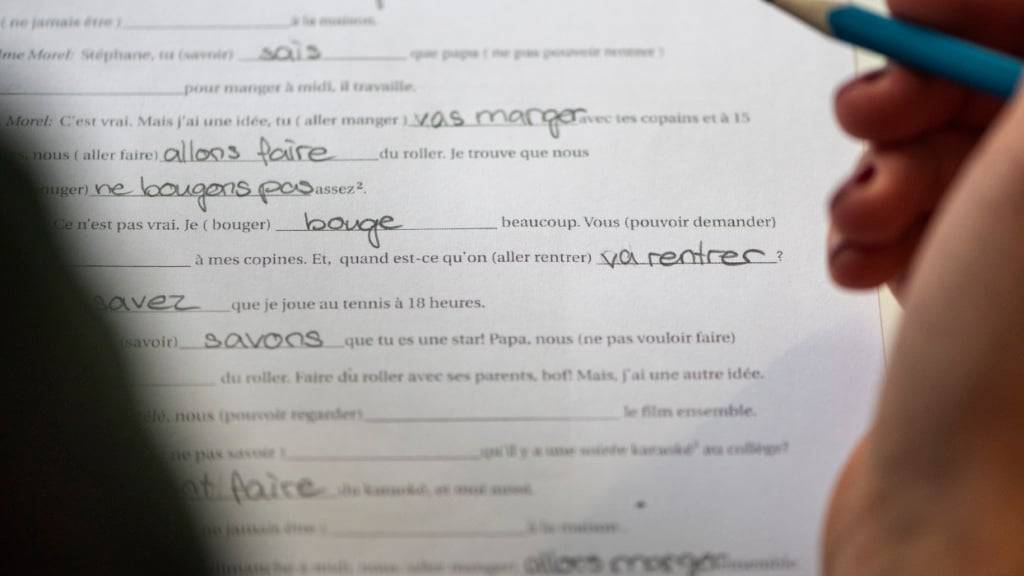 ( ne jamais être ) ____ à la maison.
me Morel: Stéphane, tu (savoir) sais que papa ( ne pas pouvoir rentrer )
____ pour manger à midi, il travaille.
Morel: C'est vrai. Mais j'ai une idée, tu ( aller manger ) vas marger avec tes copains et à 15
nous ( aller faire) allons faire du roller. Je trouve que nous
ouger) ne bougens pas assez².
Ce n'est pas vrai. Je ( bouger) bouge beaucoup. Vous (pouvoir demander)
____ à mes copines. Et, quand est-ce qu'on (aller rentrer) va rentrer ?
savez que je joue au tennis à 18 heures.
(savoir) savons que tu es une star! Papa, nous (ne pas vouloir faire)
____ du roller. Faire du roller avec ses parents, bof! Mais, j'ai une autre idée.
nous (pouvoir regarder) ____ le film ensemble.
ne pas savoir ) ____ qu'il y a une soirée karaoké³ au collège?
nt faire du karaoké, et moi aussi.
ne jamais être ) ____ à la maison.
allons marger